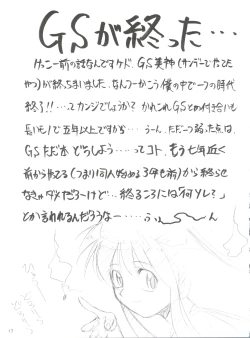 GSが終った…
けっこー前の話なんですケド、GS美神（サンデーでたてた
やつ）が終っちまいました。なんつーかこう僕の中で一つの時代
終る!!…ってカンジでしょうか？かれこれGSとの付き合いも
長いモノで五年以上ですから…うーん、ただ一つ弱った点は、
GSただ本どちしよう…ってコト、もう七年近く
前から作ってる（つまり同人始める3年も前）から終らせ
なきゃダメだろーけど…終るころには「何ソレ？」
とか言われるんだろうなー……うぃ〜〜ん